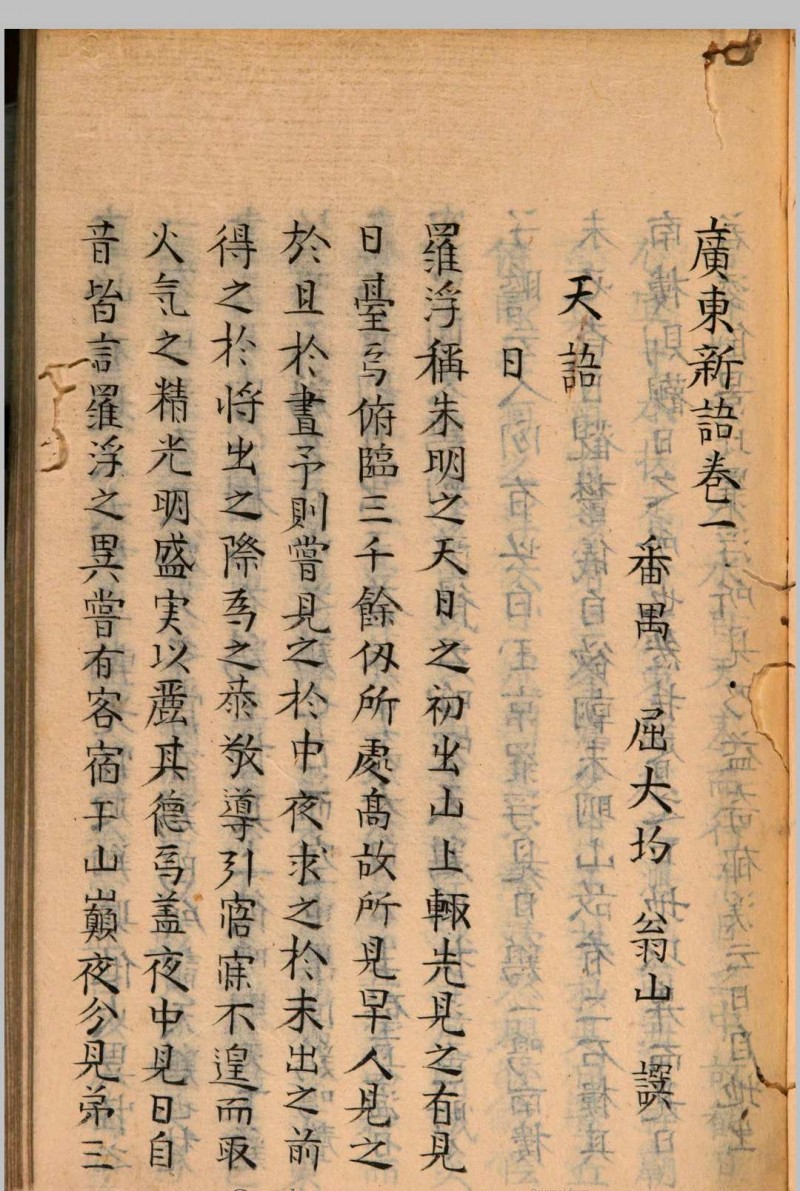 廣東新語卷一
番禺 屈大均 翁山 譔
天語
日
羅浮稱朱明之天日之初出山上輙先見之有見
日臺焉俯臨三千餘仭所處髙故所見早人見之
於旦於晝予則嘗見之於中夜求之於未出之前
得之於將出之際爲之恭敬導引寤寐不遑而取
火氣之精光明盛実以麗其德焉蓋夜中見日自
昔皆言羅浮之異嘗有客宿于山巔夜分見苐三